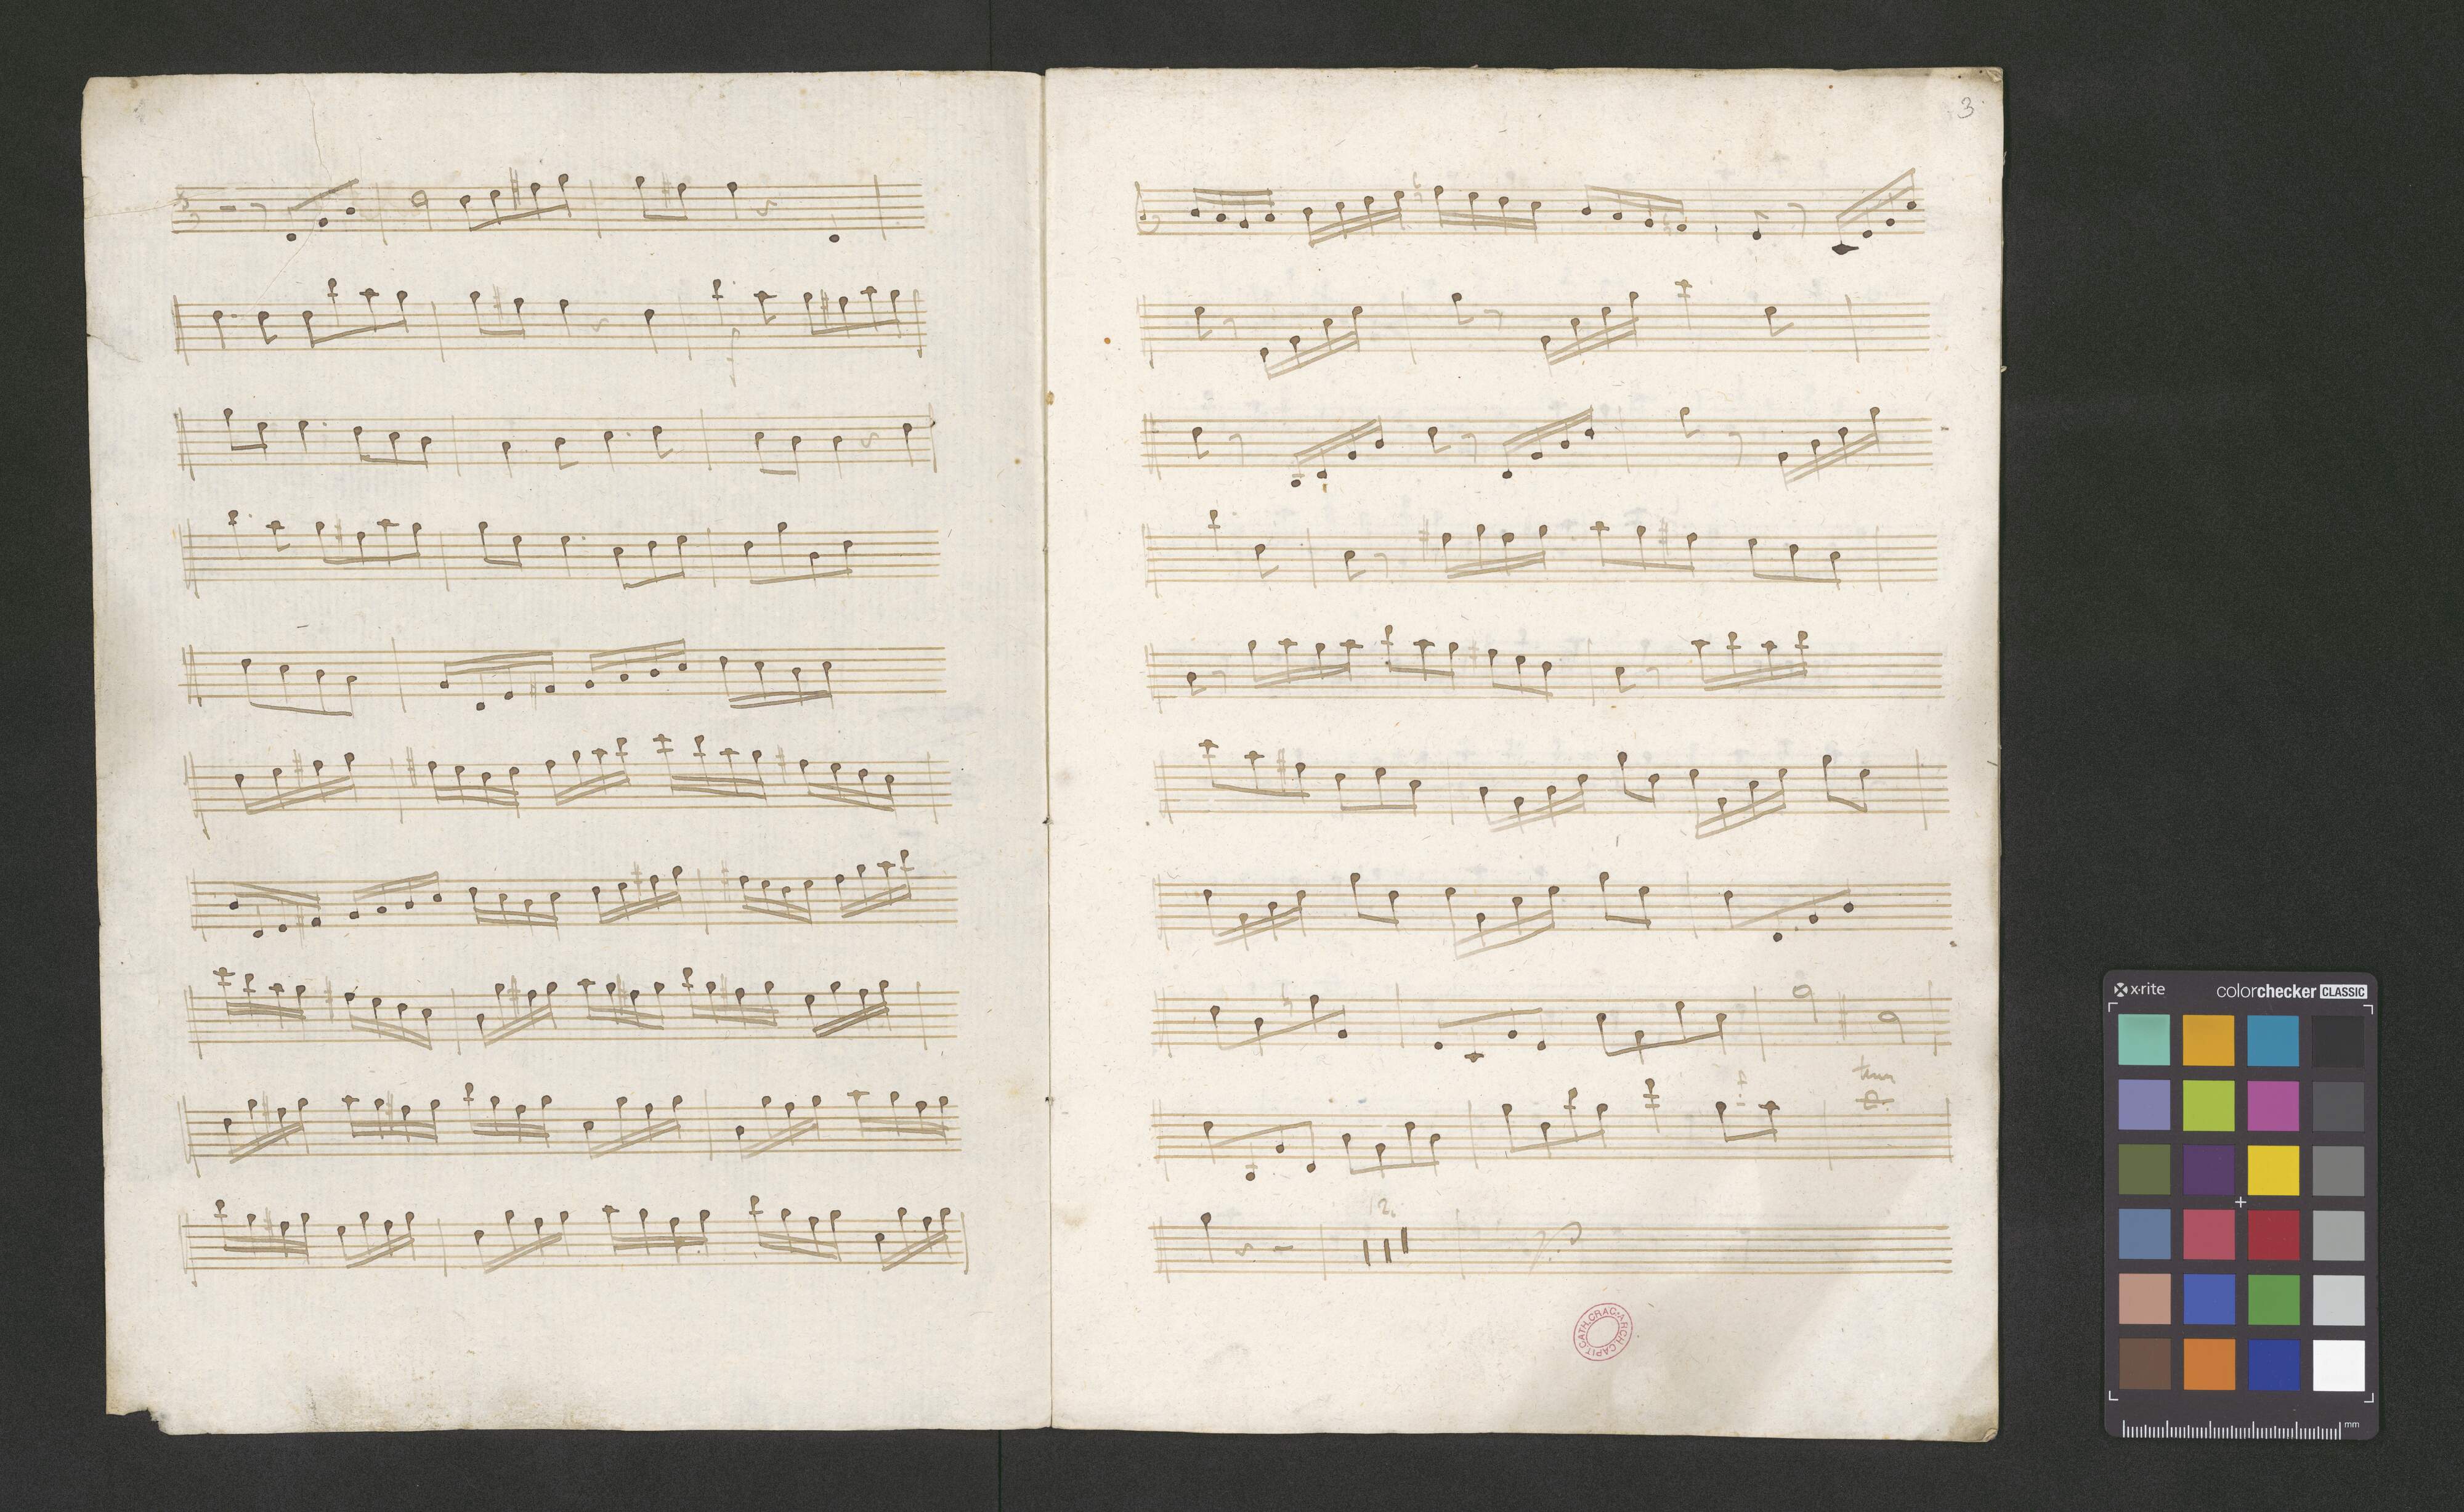 3
f
f
ten
12.
ARCH. CAPIT. CATH. CRAC.
x·rite
colorchecker CLASSIC
mm